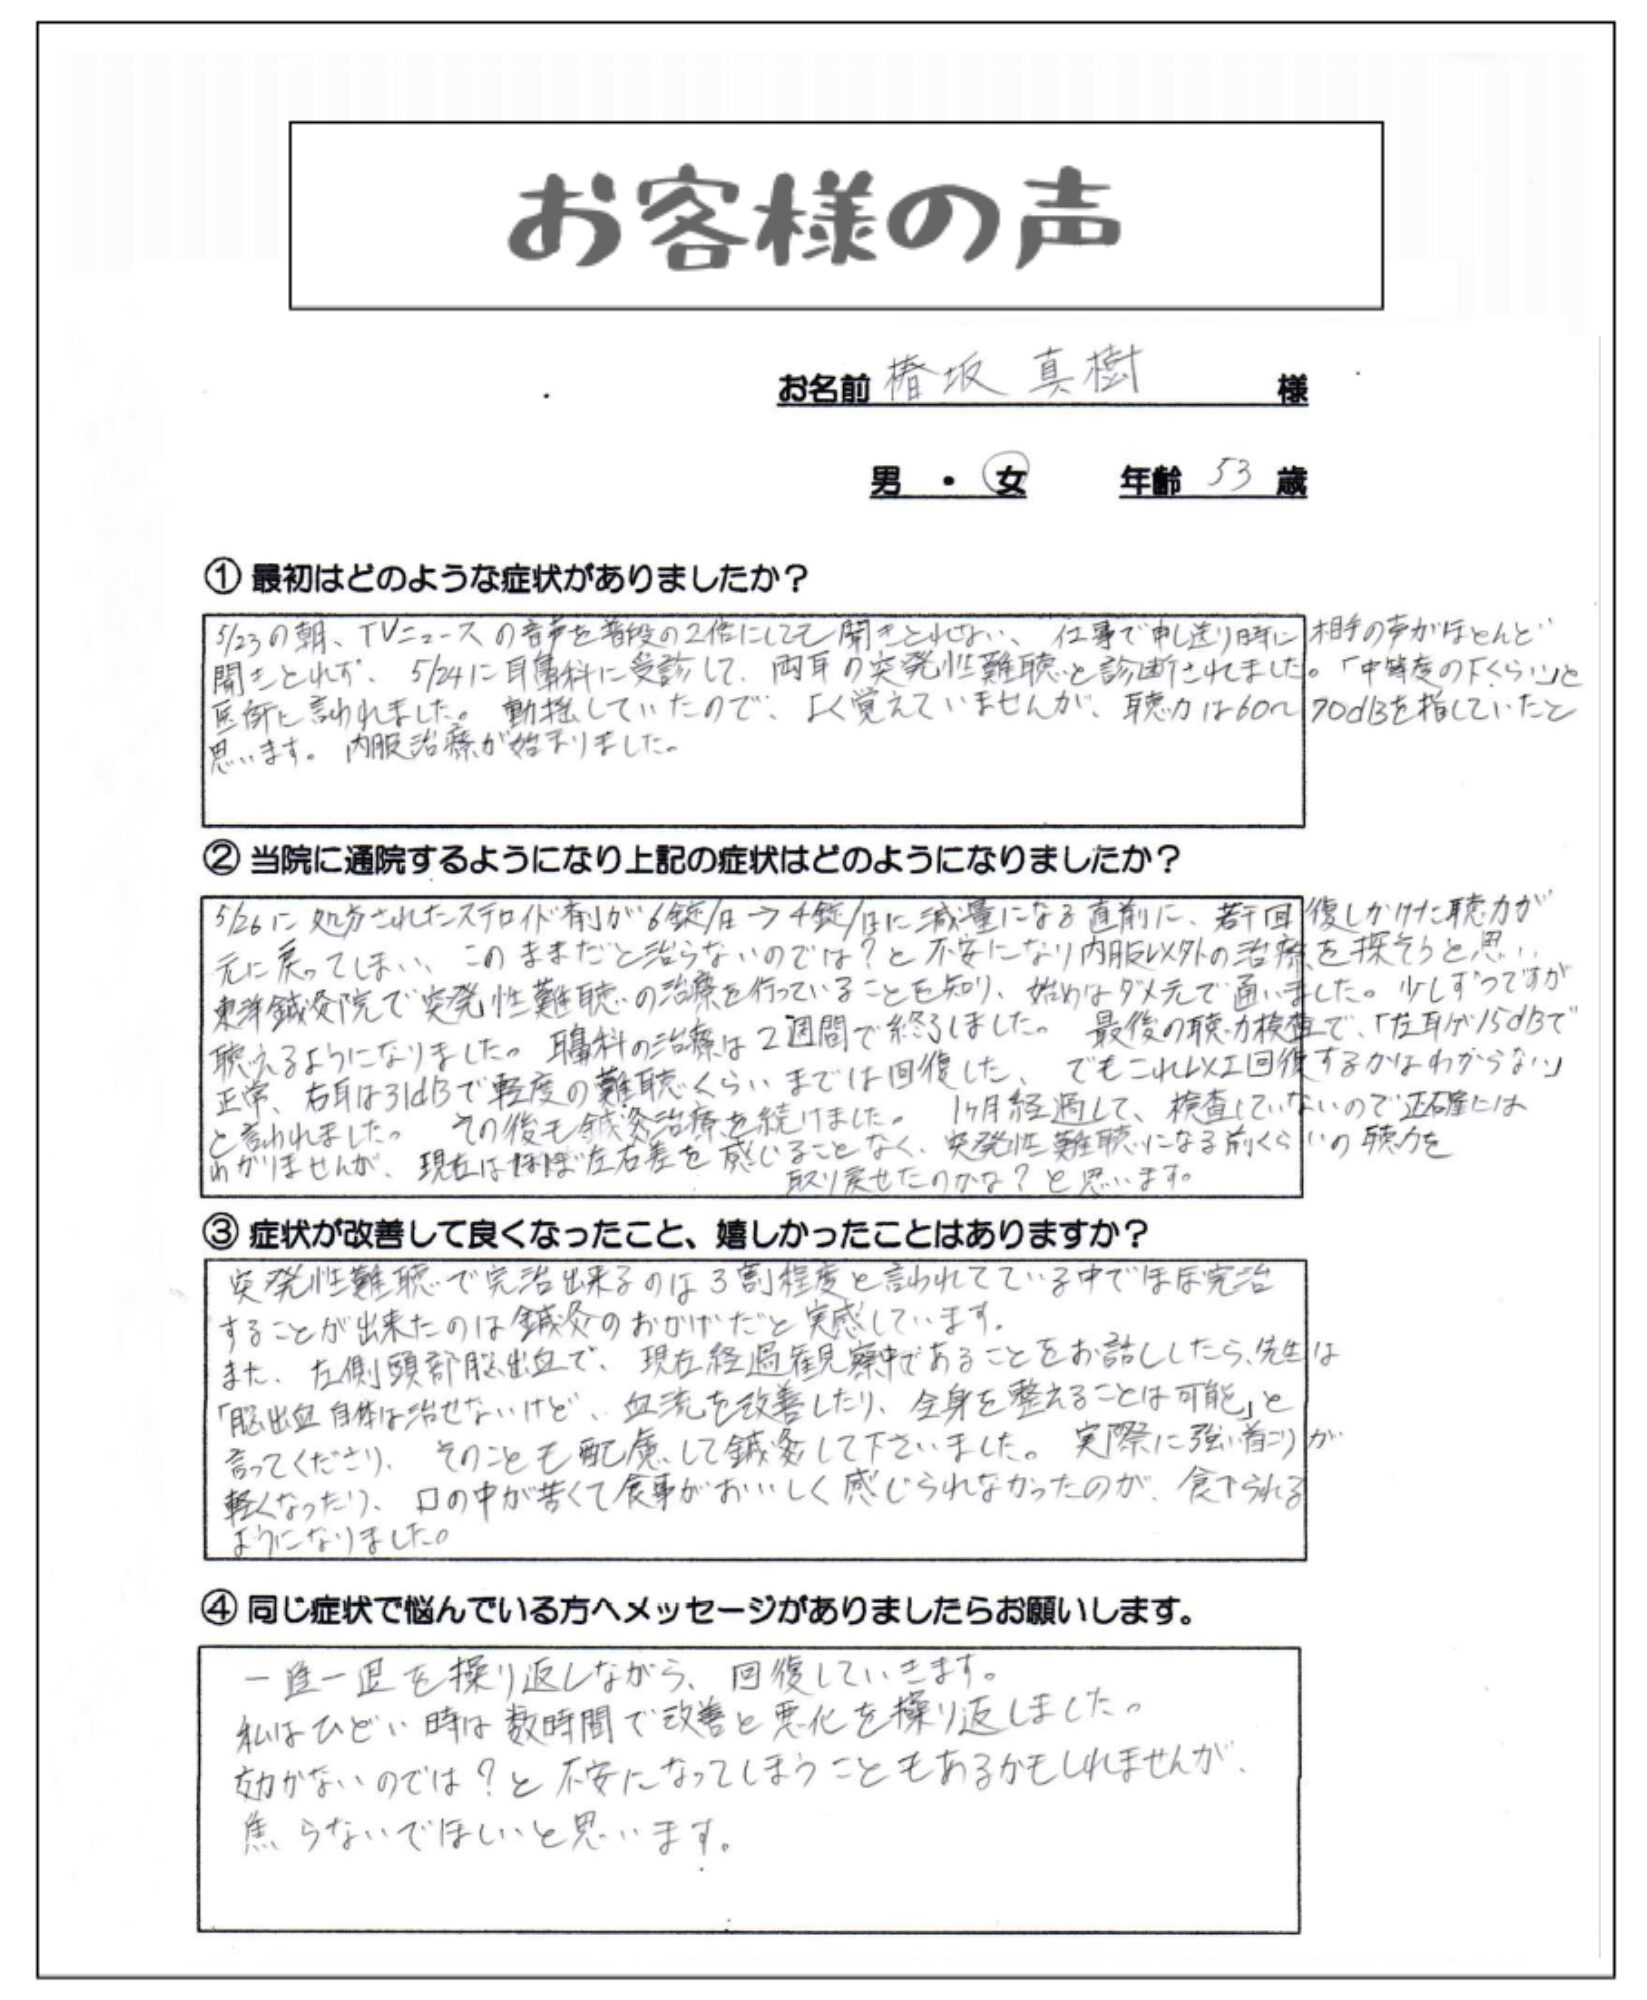 お客様の声
お名前 椿坂 真樹 様
男 ・ 女 年齢 53 歳
① 最初はどのような症状がありましたか?
5/23の朝、TVニュースの音声を普段の2倍にしても聞きとれない、仕事で申し送り時に相手の声がほとんど
聞きとれず、5/24に耳鼻科に受診して、両耳の突発性難聴と診断されました。「中等度の下くらい」と
医師に言われました。動揺していたので、よく覚えていませんが、聴力は60〜70dBを指していたと
思います。内服治療が始まりました。
② 当院に通院するようになり上記の症状はどのようになりましたか?
5/26に処方されたステロイド剤が6錠/日→4錠/日に減量になる直前に、若干回復しかけた聴力が
元に戻ってしまい、このままだと治らないのでは?と不安になり内服以外の治療を探そうと思い
東洋鍼灸院で突発性難聴の治療を行っていることを知り、始めはダメ元で通いました。少しずつですが
聴えるようになりました。耳鼻科の治療は2週間で終了しました。最後の聴力検査で、「左耳が15dBで
正常、右耳は31dBで軽度の難聴くらいまでは回復した、でもこれ以上回復するかはわからない」
と言われました。その後も鍼灸治療を続けました。1ヶ月経過して、検査していないので正確には
わかりませんが、現在はほぼ左右差を感じることなく、突発性難聴になる前くらいの聴力を
取り戻せたのかな?と思います。
③ 症状が改善して良くなったこと、嬉しかったことはありますか?
突発性難聴で完治出来るのは3割程度と言われてている中でほぼ完治
することが出来たのは鍼灸のおかげだと実感しています。
また、左側頭部脳出血で、現在経過観察中であることをお話ししたら、先生は
「脳出血自体は治せないけど、血流を改善したり、全身を整えることは可能」と
言ってくださり、そのことも配慮して鍼灸して下さいました。実際に強い首こりが
軽くなったり、口の中が苦くて食事がおいしく感じられなかったのが、食べられる
ようになりました。
④ 同じ症状で悩んでいる方へメッセージがありましたらお願いします。
一進一退を繰り返しながら、回復していきます。
私はひどい時は数時間で改善と悪化を繰り返しました。
効かないのでは?と不安になってしまうこともあるかもしれませんが、
焦らないでほしいと思います。